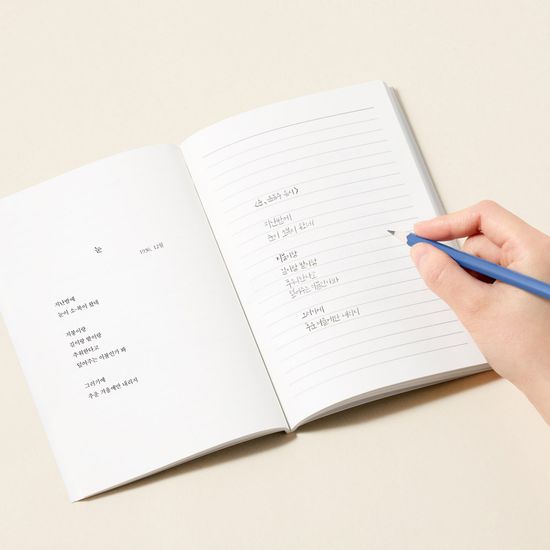 눈
1936. 12월
지난밤에
눈이 소-복이 왔네
지붕이랑
길이랑 밭이랑
추워한다고
덮어주는 이불인가 봐
그러기에
추운 겨울에만 내리지
<눈, 윤동주
지난밤에
눈이 소복이 왔네
지붕이랑
길이랑 밭이랑
추워한다고
덮어주는 이불인가봐
그러기에
추운 겨울에만 내리지